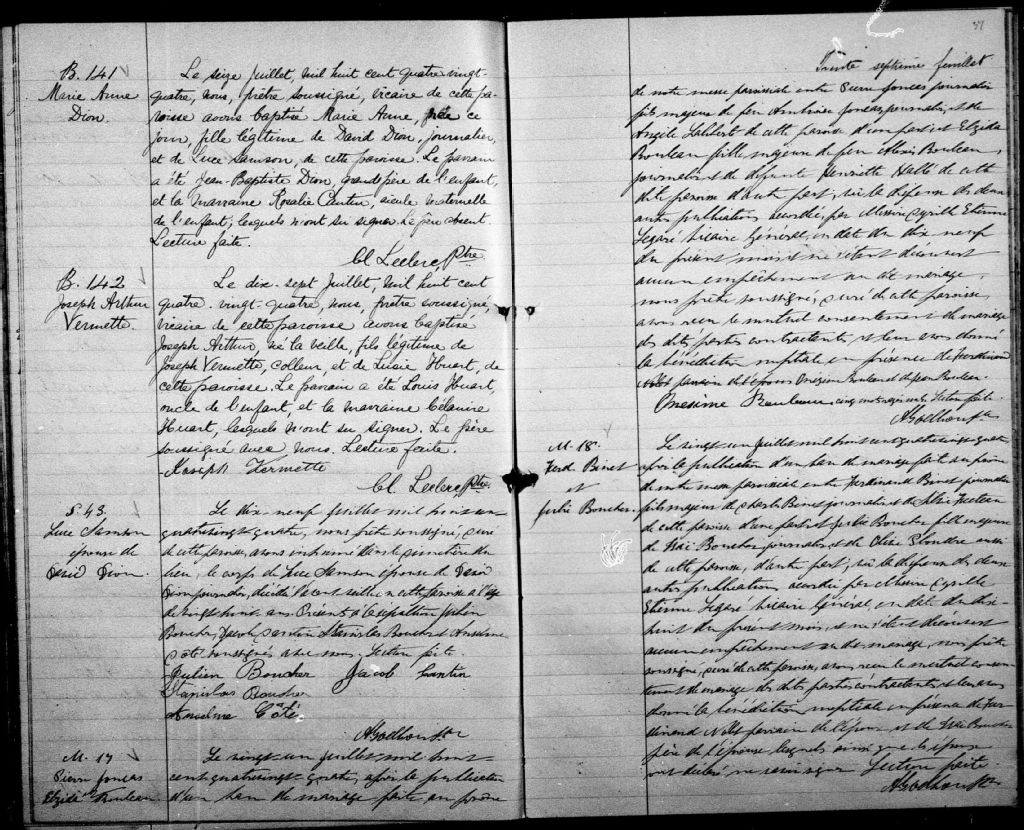 B. 141
Marie Anne
Dion.
Le seize Juillet, mil huit cent quatre vingt-
quatre, nous, prêtre soussigné, vicaire de cette pa-
roisse avons baptisé Marie Anne, née ce
jour, fille légitime de David Dion, journalier,
et de Luce Samson, de cette paroisse. Le parrain
a été Jean-Baptiste Dion, grand père de l'enfant,
et la marraine Rosalie Cantin, aieule maternelle
de l'enfant, lesquels n'ont su signer. Le père absent.
Lecture faite.
Cl. Leclerc Ptre
B. 142
Joseph Arthur
Vermette.
Le dix-sept Juillet, mil huit cent
quatre-vingt-quatre, nous, prêtre soussigné,
vicaire de cette paroisse avons baptisé
Joseph Arthur, né la veille, fils légitime de
Joseph Vermette, colleur, et de Lucie Huart, de
cette paroisse. Le parrain a été Louis Huart,
oncle de l'enfant, et la marraine Célanire
Huart, lesquels n'ont su signer. Le père
soussigné avec nous. Lecture faite.
Joseph Vermette
Cl. Leclerc Ptre
S. 43.
Luce Samson
épouse de
David Dion.
Le dix neuf juillet mil huit cent
quatrevingt-quatre, nous prêtre soussigné, curé
de cette paroisse, avons inhumé dans le cimetière du
lieu, le corps de Luce Samson épouse de David
Dion journalier, décédée l'avant veille en cette paroisse à l'âge
de vingt huit ans. Présents à la sépulture Julien
Boucher, Jacob Cantin Stanislas Boucher et Anselme
Côté soussignés avec nous. Lecture faite.
Julien Boucher Jacob Cantin
Stanislas Boucher
Anselme Côté
M. 17
Pierre Joncas
Elzida Bouleau
Le vingt-un Juillet mil huit
cent quatrevingt-quatre, après la publication
d'un ban de mariage faite au prône
51
Trente septième feuillet
de notre messe paroissiale entre Pierre Joncas journalier
fils majeur de feu Ambroise Joncas, journalier, et de
Angèle Lambert de cette paroisse d'une part et Elzida
Bouleau fille majeure de feu Alexis Bouleau,
journalier et de défunte Henriette Hallé de cette
dite paroisse d'autre part; vu la dispense de deux
autres publications accordée par Messire Cyrille Etienne
Legaré Vicaire Général, en date du dix neuf
du présent mois, et ne s'étant découvert
aucun empêchement au dit mariage,
nous prêtre soussigné, curé de cette paroisse,
avons reçu le mutuel consentement de mariage
des dits parties contractantes, et leur avons donné
la bénédiction nuptiale en présence de
Onesime Bouleau et de Jean Bouleau.
Onesime Bouleau Lecture faite.
M. 18.
Ferd. Binet
et
Julie Boucher.
Le vingt-un Juillet mil huit cent quatrevingt-quatre
après la publication d'un ban de mariage fait au prône
de notre messe paroissiale entre Ferdinand Binet journalier
fils majeur de Charles Binet journalier et de
de cette paroisse d'une part et Julie Boucher fille majeure
de Boucher, journalier, et de Plondre aussi
de cette paroisse, d'autre part; vu la dispense de deux
autres publications accordée par Messire Cyrille
Etienne Legaré Vicaire Général, en date du dix-
huit du présent mois, et ne s'étant découvert
aucun empêchement au dit mariage, nous prêtre
soussigné, curé de cette paroisse, avons reçu le mutuel consen-
tement de mariage des dits parties contractantes et leur avons
donné la bénédiction nuptiale en présence de Fer-
dinand parrain de l'époux et de Boucher
père de l'épouse, lesquels ainsi que les époux
ont déclaré ne savoir signer. Lecture faite.